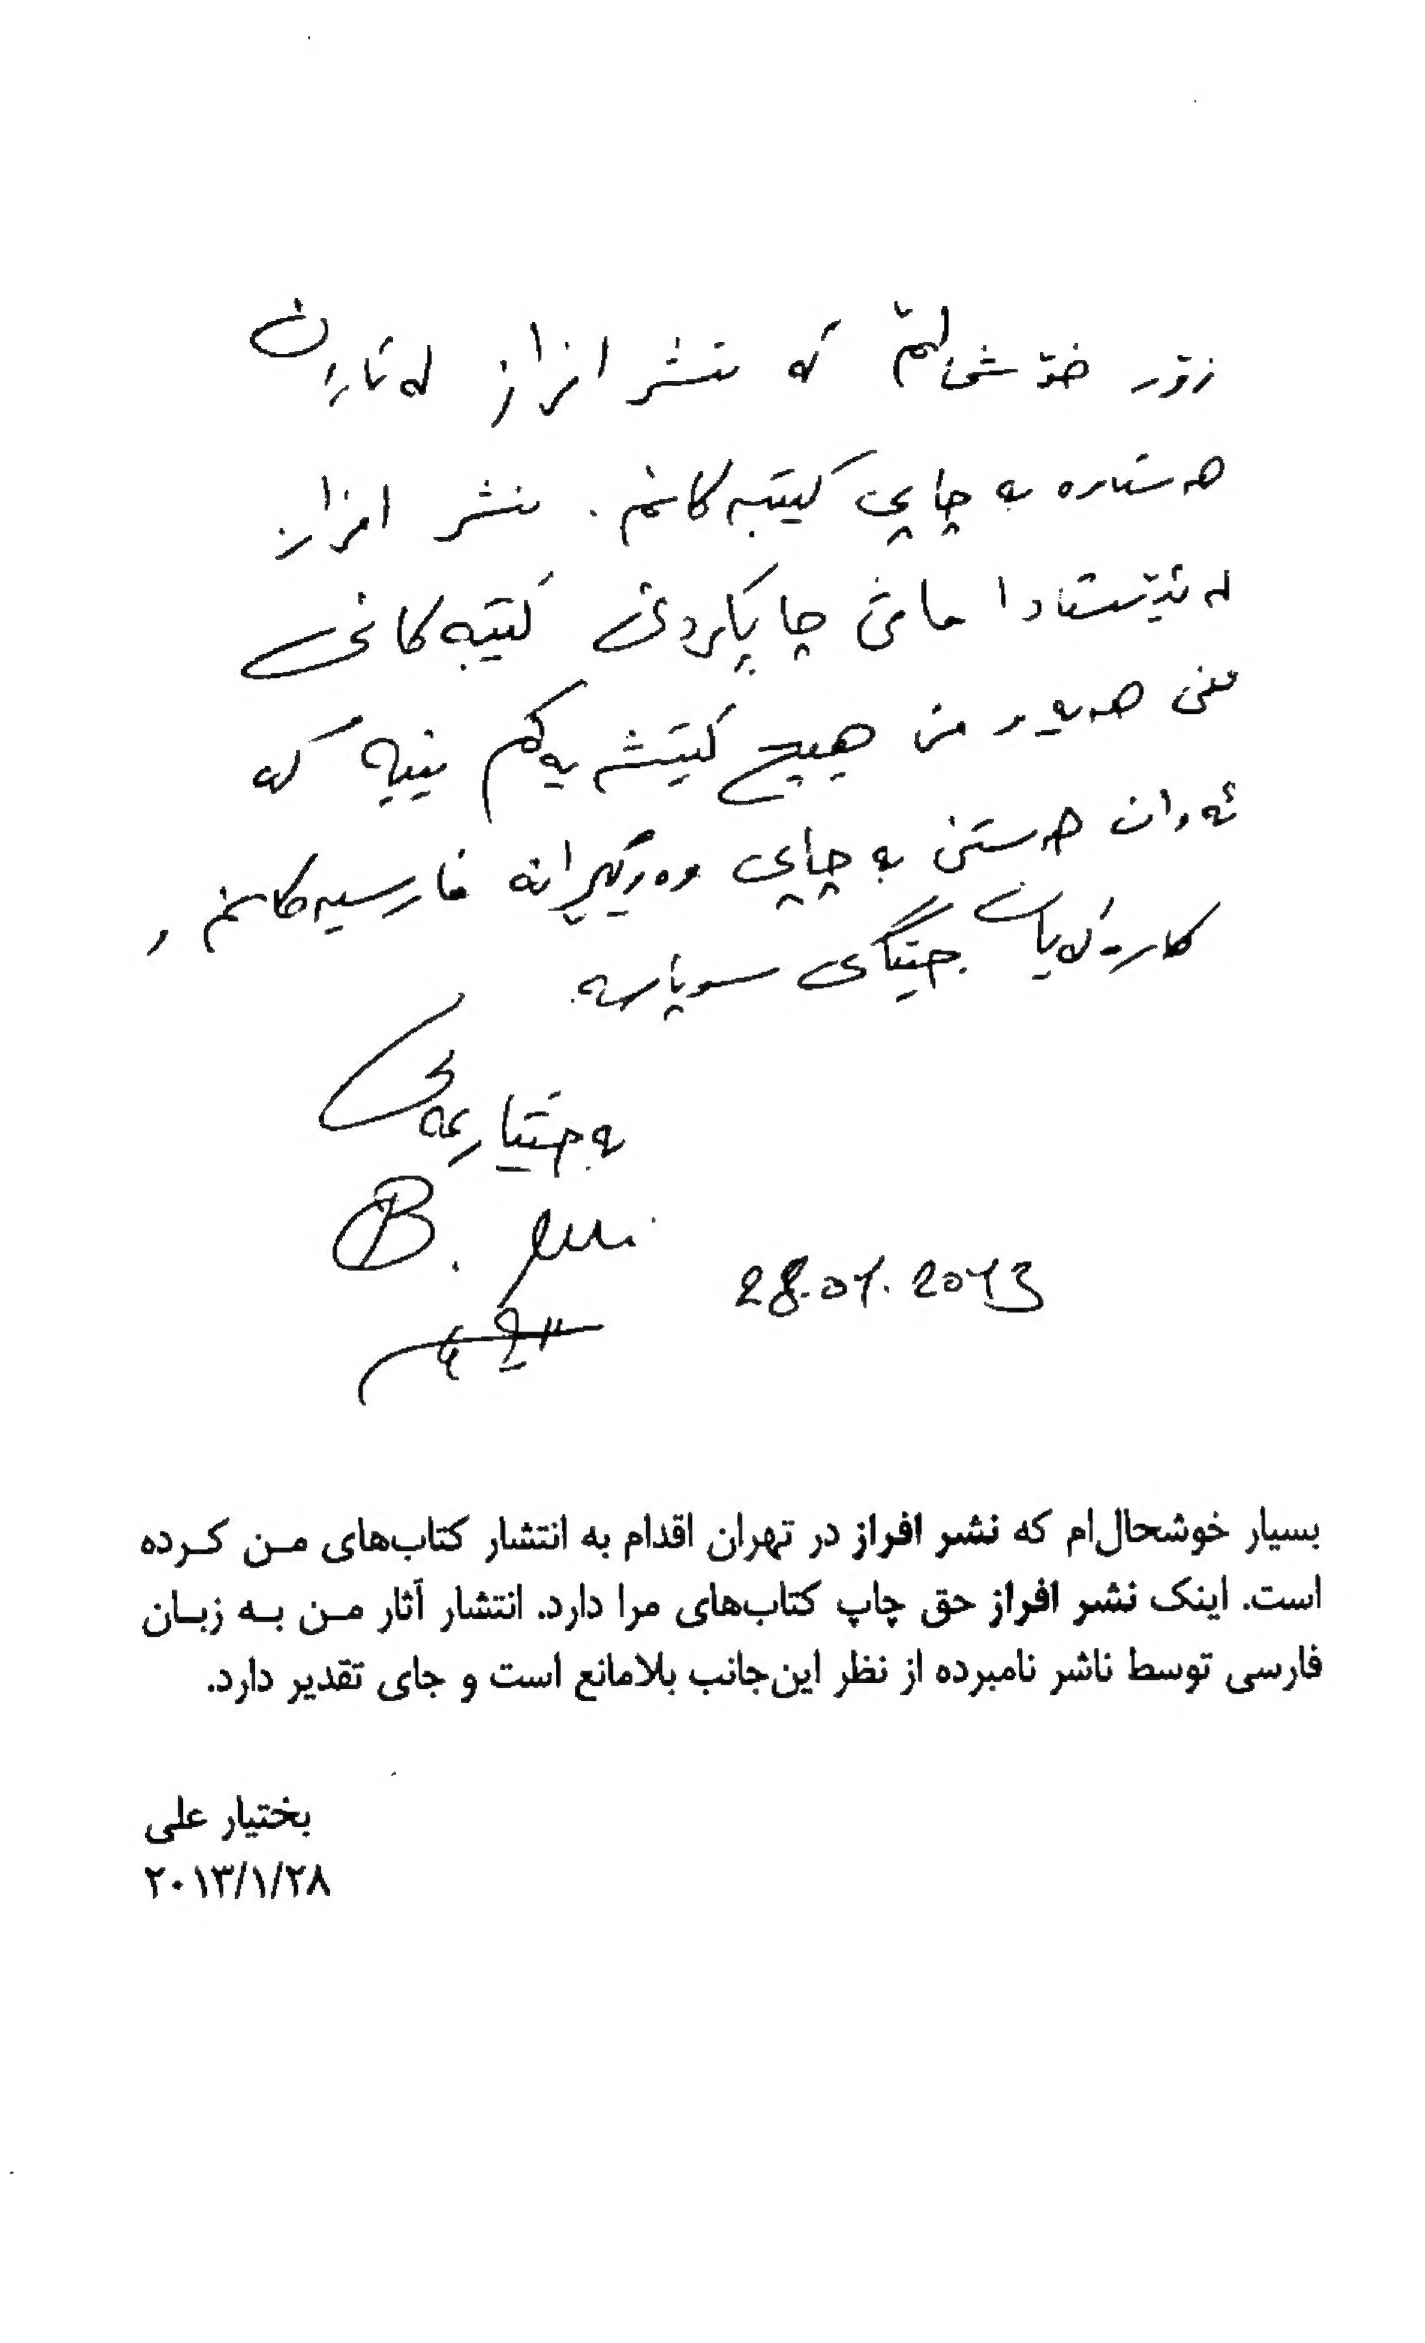 زۆر خۆشحاڵم که نشر افراز له تاران
هەستاوە به چاپی کتێبەکانم. نشر افراز
له ئێستادا مافی چاپکردنی کتێبەکانی
منی هەیە و من هیچ کێشەیەکم نییە که
ئەوان هەستن به چاپی وەرگێڕانە فارسیەکانم و
کارەکەیان جێگای سوپاسە
بەختیار عەلی
B. Ali
28.01.2013
بسیار خوشحال‌ام که نشر افراز در تهران اقدام به انتشار کتاب‌های مـن کـرده
است. اینک نشر افراز حق چاپ کتاب‌های مرا دارد. انتشار آثار مـن بـه زبـان
فارسی توسط ناشر نامبرده از نظر این‌جانب بلامانع است و جای تقدیر دارد.
بختیار علی
۲۰۱۳/۱/۲۸